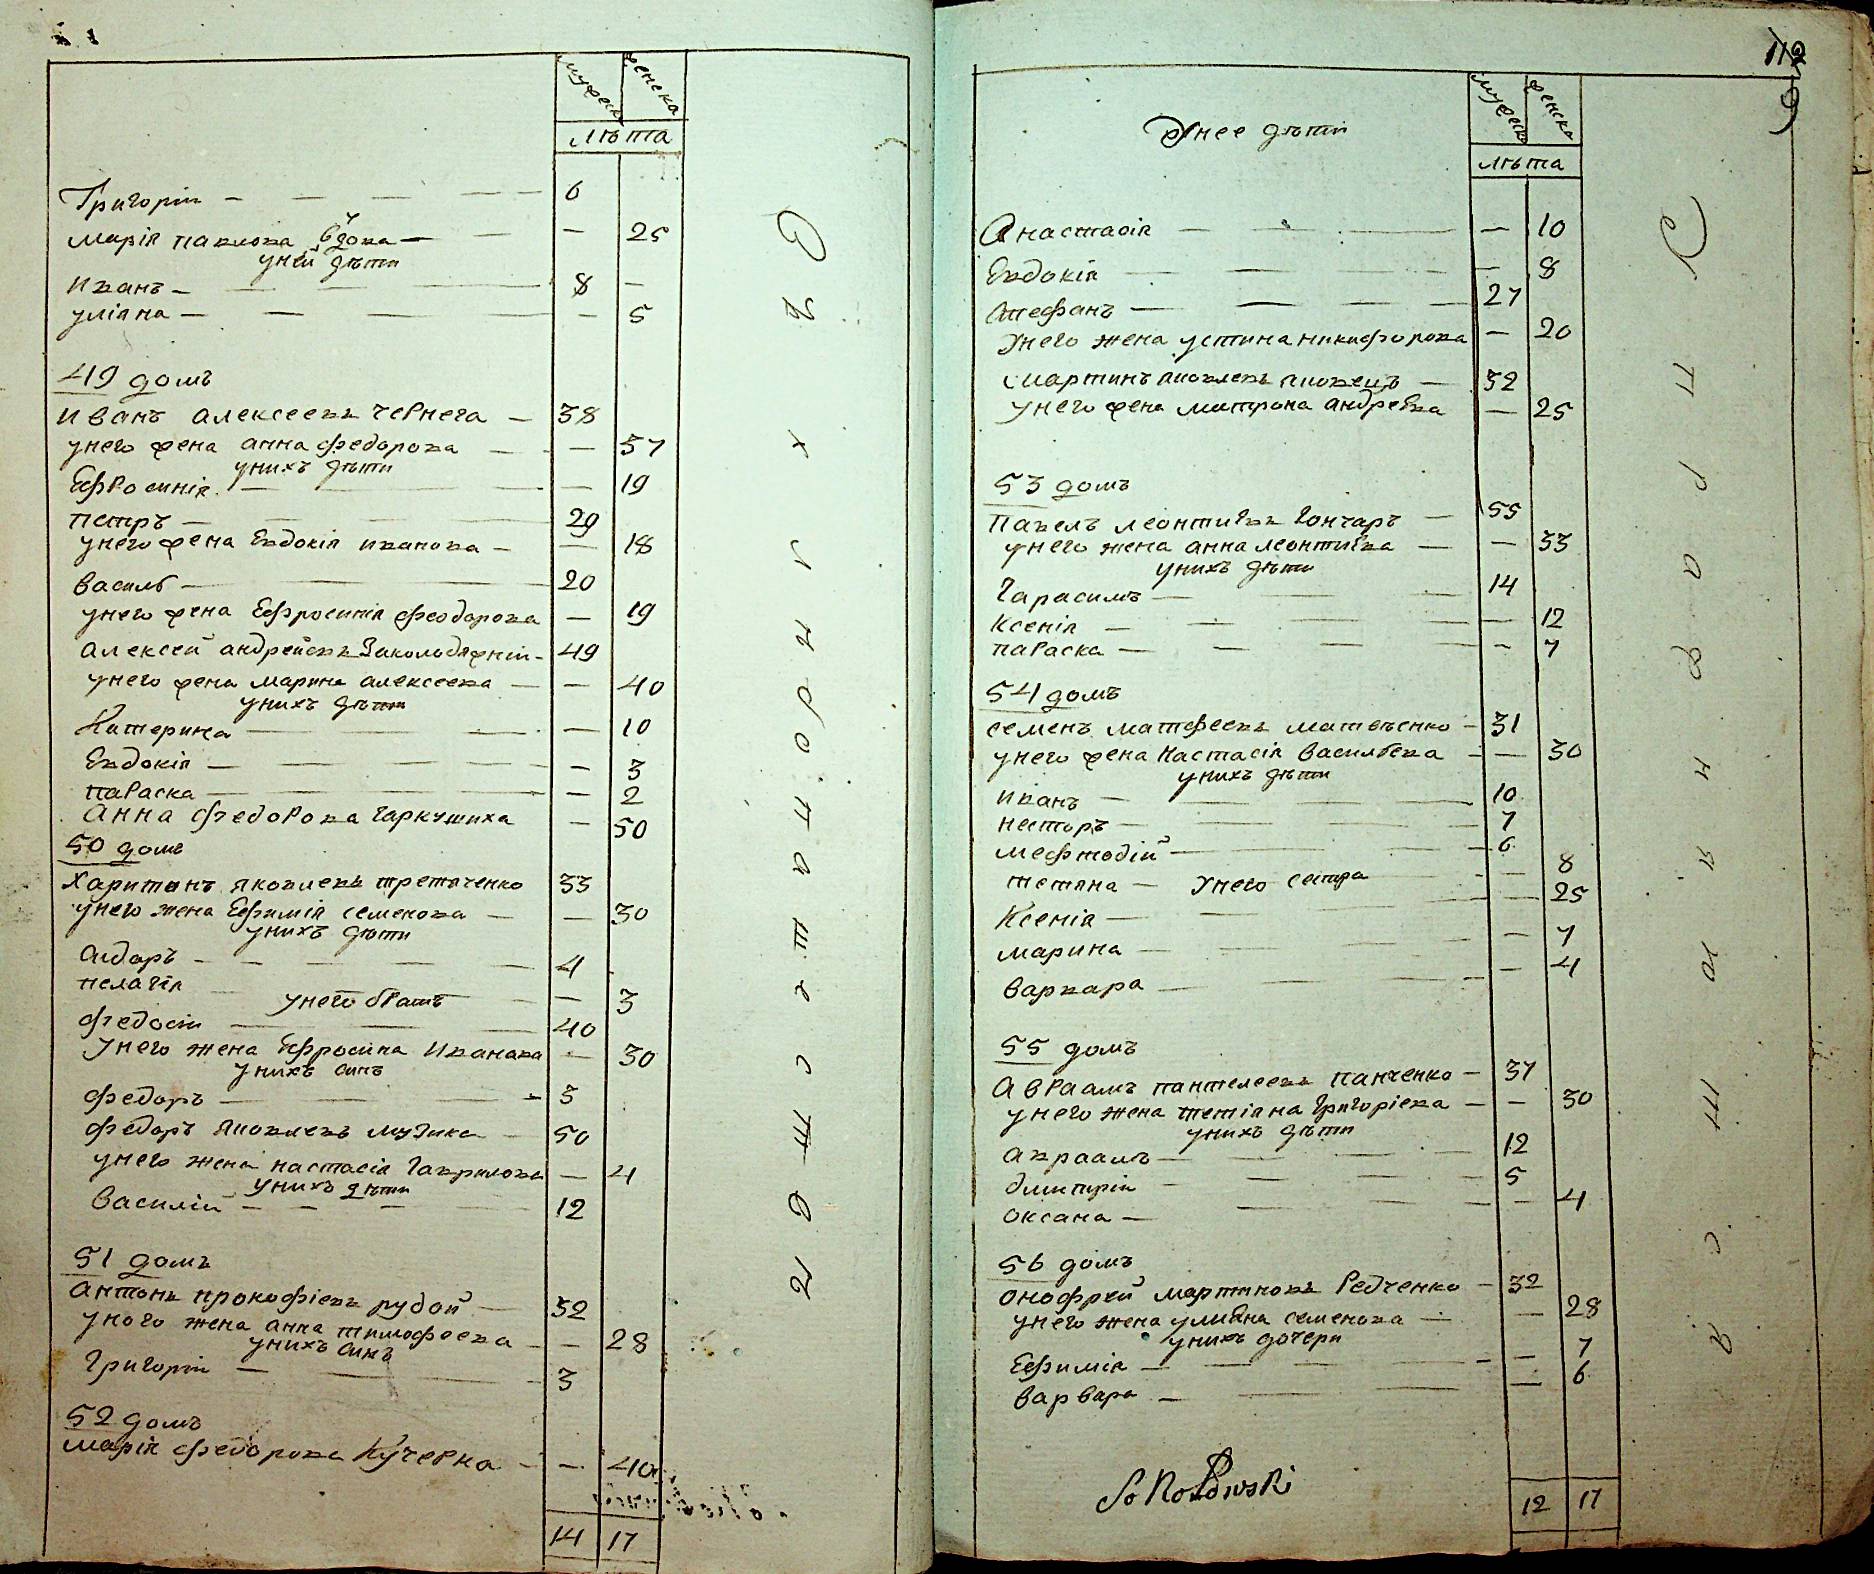 мужеска женска
лѣта
Григорій 6
марія павлова вдова 25
уней дѣти
иванъ 8
уліяна 5
49 домъ
иванъ алексеевъ чернега 38
унего жена анна федорова 57
унихъ дѣти
Ефросинія 19
петръ 29
унего жена Евдокія иванова 18
василь 20
унего жена Ефросинія феодорова 19
алексей андрейевъ 49
унего жена марина алексеева 40
унихъ дѣти
Катерина 10
Евдокія 3
параска 2
анна федорова гаркушиха 50
50 домъ
харитонъ яковлевъ третяченко 33
унего жена Ефимія семенова 30
унихъ дѣти
сидоръ 4
пелагія 3
унего братъ
федосій 40
унего жена Ефросина иванова 30
унихъ синъ
федоръ 3
федоръ яковлевъ музика 50
унего жена настасія гаврилова 4
унихъ дѣти
василій 12
51 домъ
антонъ прокофіевъ рудой 52
уного жена анна тимофеева 28
унихъ синъ
григорій 3
52 домъ
марія федорова Кучерна 40
14 17
мужеска женска
унее дѣти
лѣта
анастасія 10
Евдокія 8
стефанъ 27
унего жена устина никифорова 20
мартинъ яковлевъ яковецъ 32
унего жена матрона андреева 25
53 домъ
павелъ леонтиевъ гончаръ 55
унего жена анна леонтиева 33
унихъ дѣти
гарасимъ 14
ксенія 12
параска 7
54 домъ
семенъ матфеевъ матвѣенко 31
унего жена настасія васильева 30
унихъ дѣти
иванъ 10
несторъ 7
мефтодій 6
тетяна 8
унего сестра
ксенія 25
марина 7
варвара 4
55 домъ
авраамъ пантелеевъ панченко 37
унего жена тетіяна григоріева 30
унихъ дѣти
авраамъ 12
димитрій 5
оксана 4
56 домъ
онофрей мартиновъ редченко 32
унего жена улияна семенова 28
унихъ дочери
Ефимія 7
варвара 6
Sokołowski
12 17